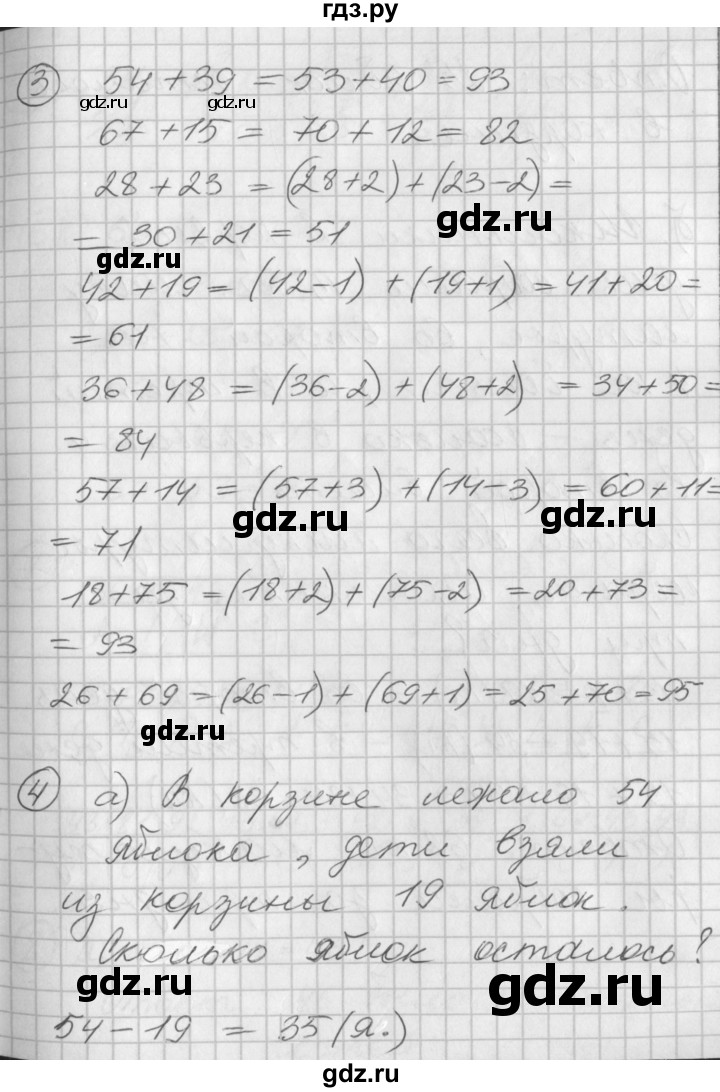 гдз.ру
3 54 + 39 = 53 + 40 = 93
gdz.ru gdz.ru
67 + 15 = 70 + 12 = 82
28 + 23 = (28+2) + (23-2) =
gdz.ru
= 30 + 21 = 51
gdz.ru
42 + 19 = (42-1) + (19+1) = 41 + 20 =
= 61
36 + 48 = (36-2) + (48+2) = 34 + 50 =
= 84
57 + 14 = (57+3) + (14-3) = 60 + 11 =
gdz.ru gdz.ru
= 71
18 + 75 = (18+2) + (75-2) = 20 + 73 =
= 93
26 + 69 = (26-1) + (69+1) = 25 + 70 = 95
gdz.ru
4 а) В корзине лежало 54
яблока, дети взяли
из корзины 19 яблок.
Сколько яблок осталось?
gdz.ru gdz.ru
54 - 19 = 35 (я.)
gdz.ru